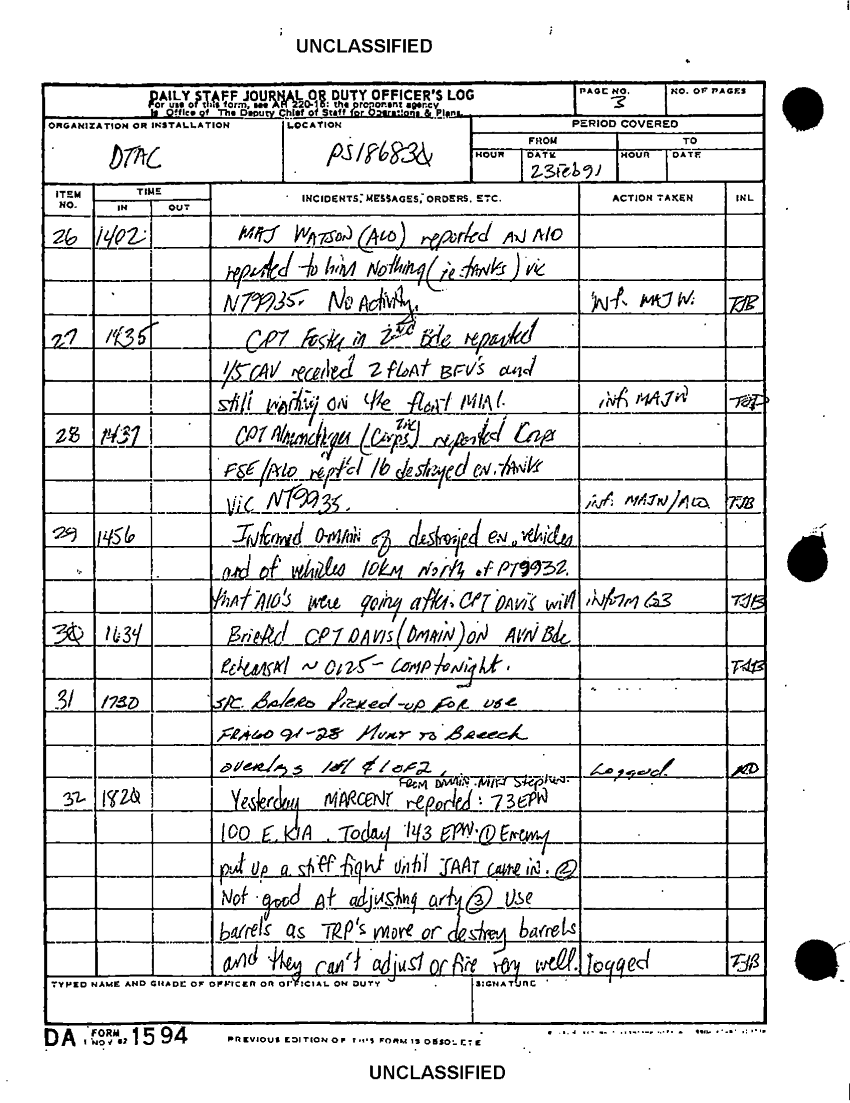 UNCLASSIFIED
DAILY STAFF JOURNAL OR DUTY OFFICER'S LOG
For use of this form, see AR 220-15; the proponent agency
is Office of The Deputy Chief of Staff for Operations & Plans.
PAGE NO.
3
NO. OF PAGES
ORGANIZATION OR INSTALLATION
DTAC
LOCATION
PS186830
PERIOD COVERED
FROM
TO
HOUR
DATE
23Feb91
HOUR
DATE
ITEM NO.
TIME
IN
OUT
INCIDENTS, MESSAGES, ORDERS, ETC.
ACTION TAKEN
INL
26 1402 MAJ WATSON (ALO) reported AN A10
reported to him Nothing (ie tanks) vic
NT9935. No Activity. inf. MAJ W. TJB
27 1435 CPT Foster in 2nd Bde reported
1/5 CAV received 2 float BFV's and
still waiting on the float M1A1. inf. MAJ W
28 1437 CPT (Corps) reported Corps
FSE/ALO rept'd 16 destroyed en. tanks
vic NT9935. inf. MAJW/ALO TJB
29 1456 Informed D-MAIN of destroyed en. vehicles
and of vehicles 10KM North of PT9932.
that A10's were going after. CPT DAVIS will inform G3 TJB
30 1634 Briefed CPT DAVIS (DMAIN) ON AVN Bde
Rehearsal ~ 0125 - COMP tonight. TJB
31 1730 SPC Balero Picked-up FOR USE
FRAGO 91-28 HUNT TO Breech
overlays 1of1 & 1of2, Logged.
32 1820 Yesterday MARCENT reported: 73EPW
FROM DMAIN. Stephen.
100 E. KIA. Today 143 EPW. ① Enemy
put up a stiff fight until JAAT came in. ②
Not good At adjusting arty ③ Use
barrels as TRP's more or destroy barrels
and they can't adjust or fire very well. logged TJB
TYPED NAME AND GRADE OF OFFICER OR OFFICIAL ON DUTY
SIGNATURE
DA FORM 1 NOV 62 1594
PREVIOUS EDITION OF THIS FORM IS OBSOLETE
UNCLASSIFIED